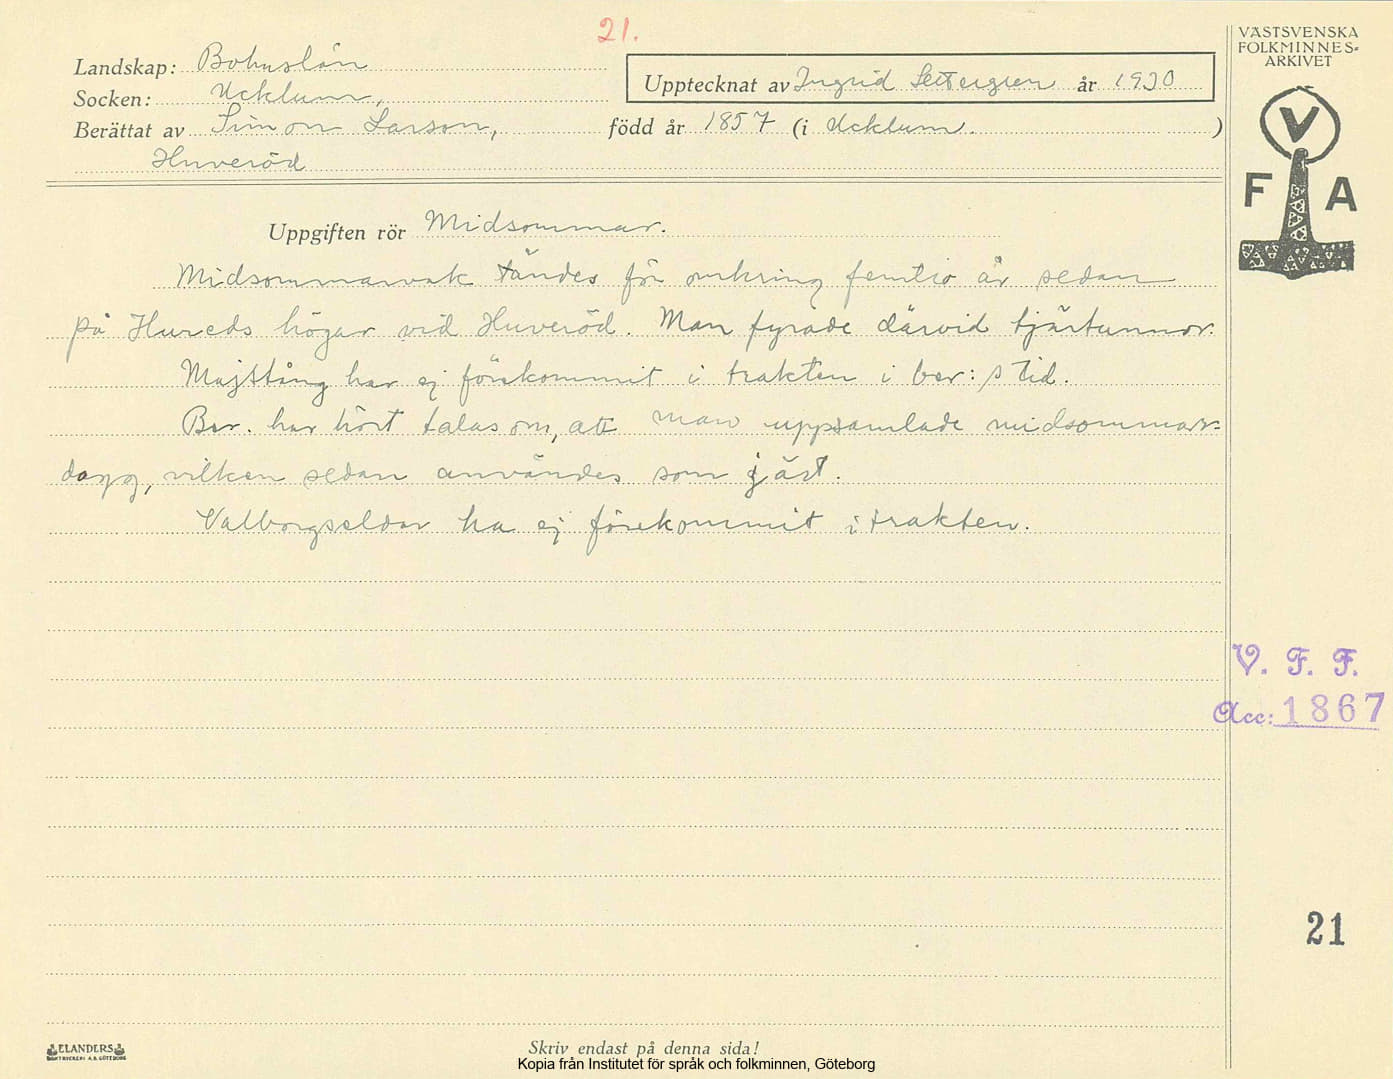 21.
VÄSTSVENSKA
FOLKMINNES-
ARKIVET
Landskap: Bohuslän
Upptecknat av Ingrid Settergren år 1930
Socken: Ucklum,
Berättat av Simon Larson, född år 1857 (i Ucklum. )
Huveröd
V
F A
Uppgiften rör Midsommar.
Midsommarvak tändes för omkring femtio år sedan
på Hureds högar vid Huveröd. Man fyrade därvid tjärtunnor.
Majstång har ej förekommit i trakten i ber:s tid.
Ber. har hört talas om, att man uppsamlade midsommar-
dagg, vilken sedan användes som jäst.
Valborgseldar ha ej förekommit i trakten.
V. F. F.
Acc: 1867
21
ELANDERS
BOKTRYCKERI A.B. GÖTEBORG
Skriv endast på denna sida!
Kopia från Institutet för språk och folkminnen, Göteborg